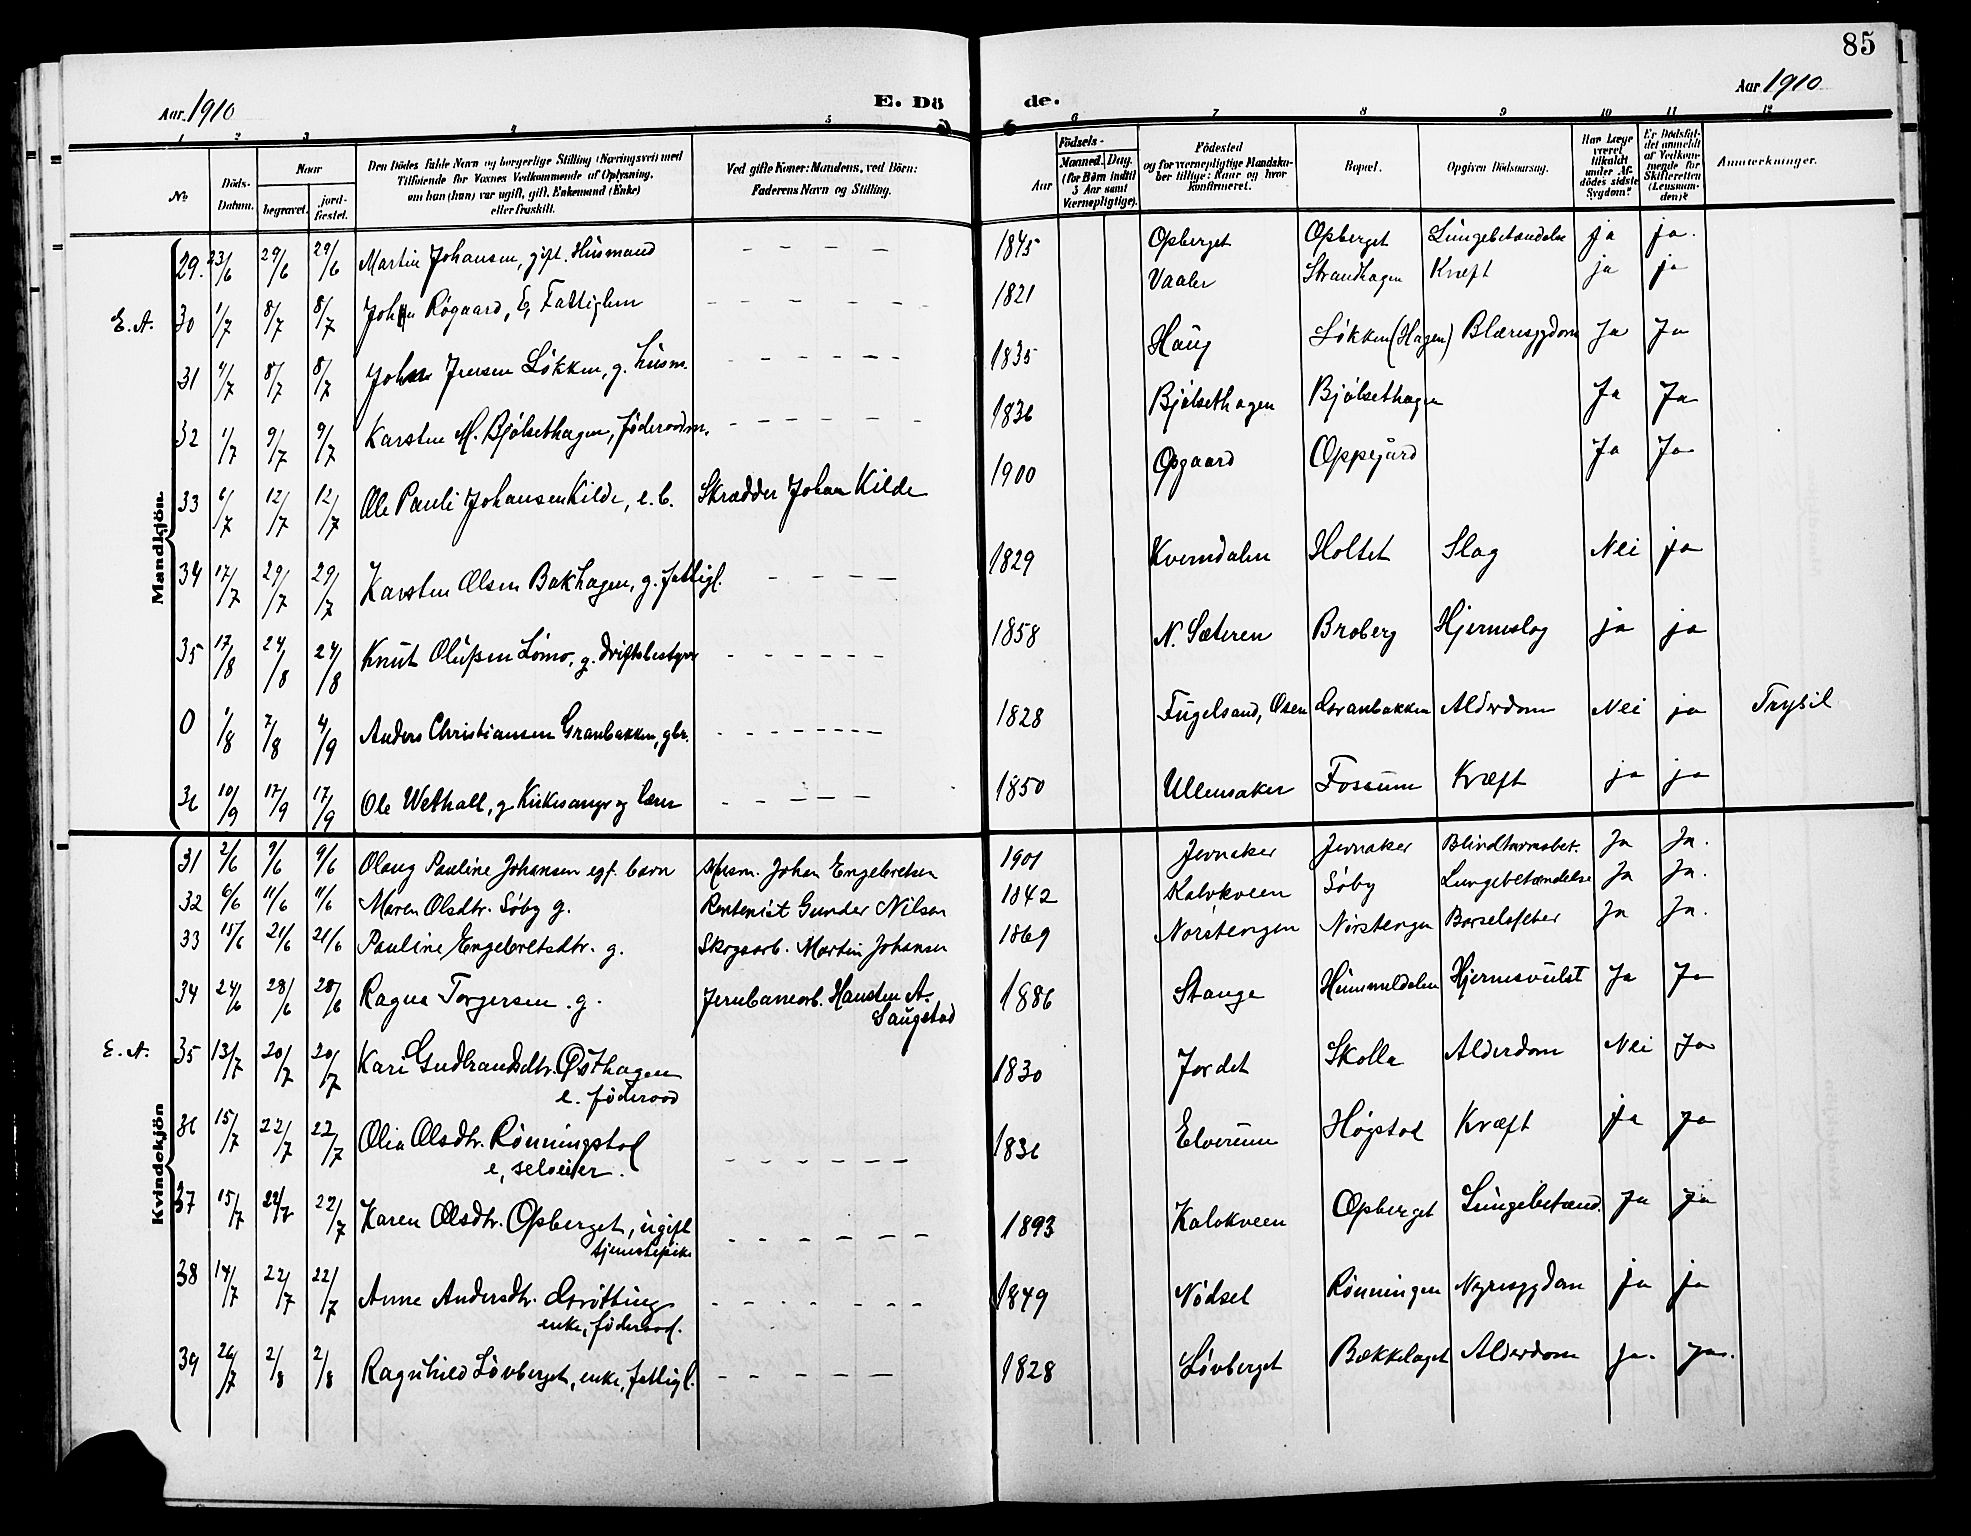 85
Aar 1910
E. Dö
de.
Aar 1910
1 2 3 4 5 6 7 8 9 10 11 12
No
Döds-Datum.
Naar
begravet.
jord-fæstet.
Den Dödes fulde Navn og borgerlige Stilling (Næringsvei) med
Tilföiende for Voxnes Vedkommende af Oplysning,
om han (hun) var ugift, gift, Enkemand (Enke)
eller fraskilt.
Ved gifte Koner: Mandens, ved Börn:
Faderens Navn og Stilling.
Födsels-
Aar
Maaned. Dag.
(for Börn indtil
5 Aar samt
Værnepligtige).
Födested
og for værnepligtige Mandska-
ber tillige: Naar og hvor
konfirmeret.
Bopæl.
Opgiven Dödsaarsag.
Har Læge
været
tilkaldt
under Af-
dödes sidste
Sygdom?
Er Dödsfal-
det anmeldt
af Vedkom-
mende for
Skifteretten
(Lensman-
den)?
Anmærkninger.
Mandkjön
29. 23/6 29/6 29/6 Martin Johansen, gift. Husmand - - - - 1845 Opberget Opberget Lungebetændelse ja ja.
E. A. 30 1/7 8/7 8/7 Johan Røgaard, E, Fattiglem - - - - - - 1821 Vaaler Strandhagen Kræft ja ja
31 4/7 8/7 8/7 Johan Jensen Løkken, g. husm. - - - - - - 1835 Haug Løkken (Hagen) Blæresygdom Ja Ja
32 1/7 9/7 9/7 Karsten M. Bjølsethagen, föderaadm. - - - - - - 1836 Bjølsethagen Bjølsethagen Ja Ja
33 6/7 12/7 12/7 Ole Pauli Johansen Kilde, e. b. Skrædder Johan Kilde 1900 Opgaard Oppegård Ja Ja
34 17/7 29/7 29/7 Karsten Olsen Bakhagen, g. fattigl. - - - - 1829 Kverndalen Holtet Slag Nei ja
35 17/8 24/8 24/8 Knut Olufsen Lømo, g. driftsbestyrer - - - - - - 1858 N. Sæteren Broberg Hjerneslag ja ja
0 1/8 7/8 4/9 Anders Christiansen Granbakken, gbr. - - - - - - - 1828 Fugelsand, Osen Granbakken Alderdom Nei ja Trysil
36 10/9 17/9 17/9 Ole Wethall, g Kirkesanger og lærer - - - - - 1850 Ullensaker Fossum Kræft ja ja
Kvindekjön
31 2/6 9/6 9/6 Olaug Pauline Johansen egf. barn Husm. Johan Engebretsen 1901 Jernaker Jernaker Blindtarmsbet. Ja Ja.
32 6/6 11/6 11/6 Maren Olsdtr. Søby g. Rentenist Gunder Nilsen 1842 Kalvkveen Søby Lungebetændelse Ja Ja.
33 15/6 21/6 21/6 Pauline Engebretsdtr. g. Skogsarb. Martin Johansen 1869 Nørstengen Nørstengen Barselsfeber Ja Ja.
34 24/6 28/6 28/6 Ragna Torgersen. g. Jernbanearb. Hansten A. 1886 Stange Himmeldalen Hjernesvulst Ja Ja
Saugstad
E. A. 35 13/7 20/7 20/7 Kari Gudbrandsdtr. Østhagen 1830 Jordet Skolla Alderdom Nei Ja
e. föderaad
36 15/7 22/7 22/7 Olia Olsdtr. Rønningstad - - - - - - 1836 Elverum Høgstad Kræft ja ja
e, selveier.
37 15/7 22/7 22/7 Karen Olsdtr. Opberget, ugift - - - - - - 1893 Kalvkveen Opberget Lungebetænd. ja ja
tjenestepike
38 14/7 22/7 22/7 Anne Andersdtr. Grøtting - - - - - - - 1849 Nødset Rønningen Nyresygdom ja ja
enke, föderaad.
39 26/7 2/8 2/8 Ragnhild Løvberget, enke, fattigl. - - - - - 1828 Løvberget Bækkelaget Alderdom ja. ja.